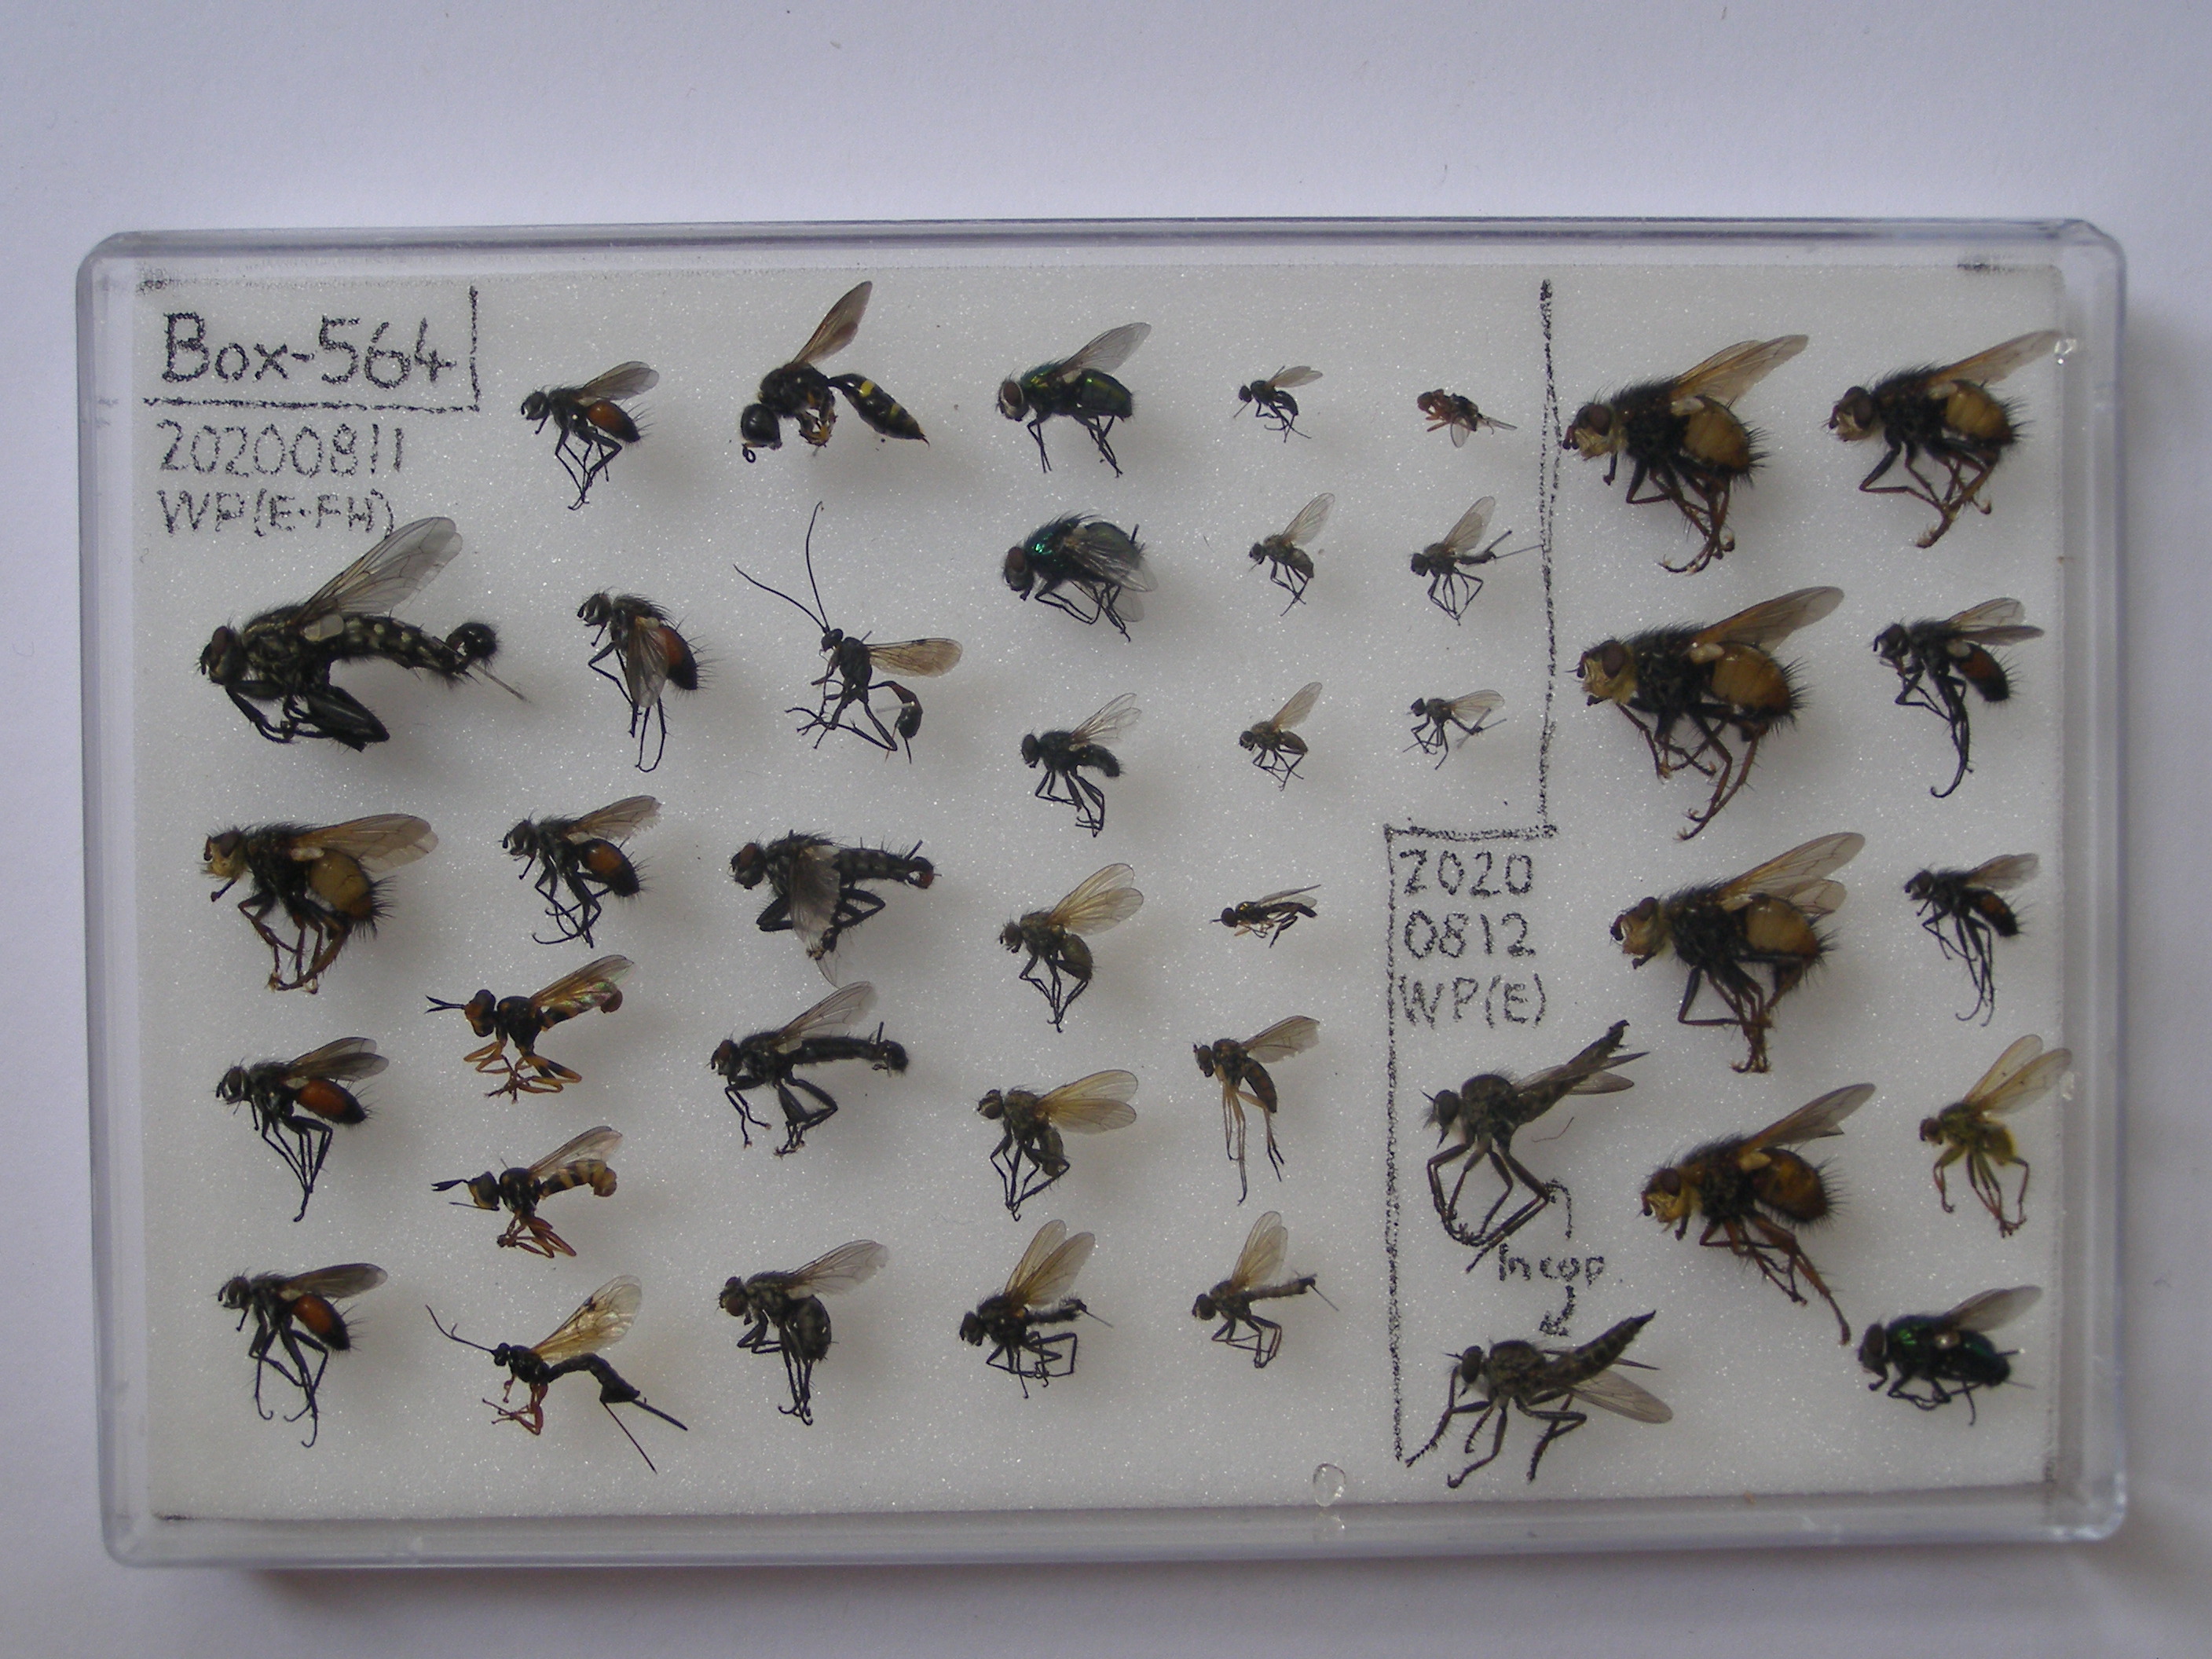 Box-564
20200811
WP(E-FH)
2020
0812
WP(E)
In cop.